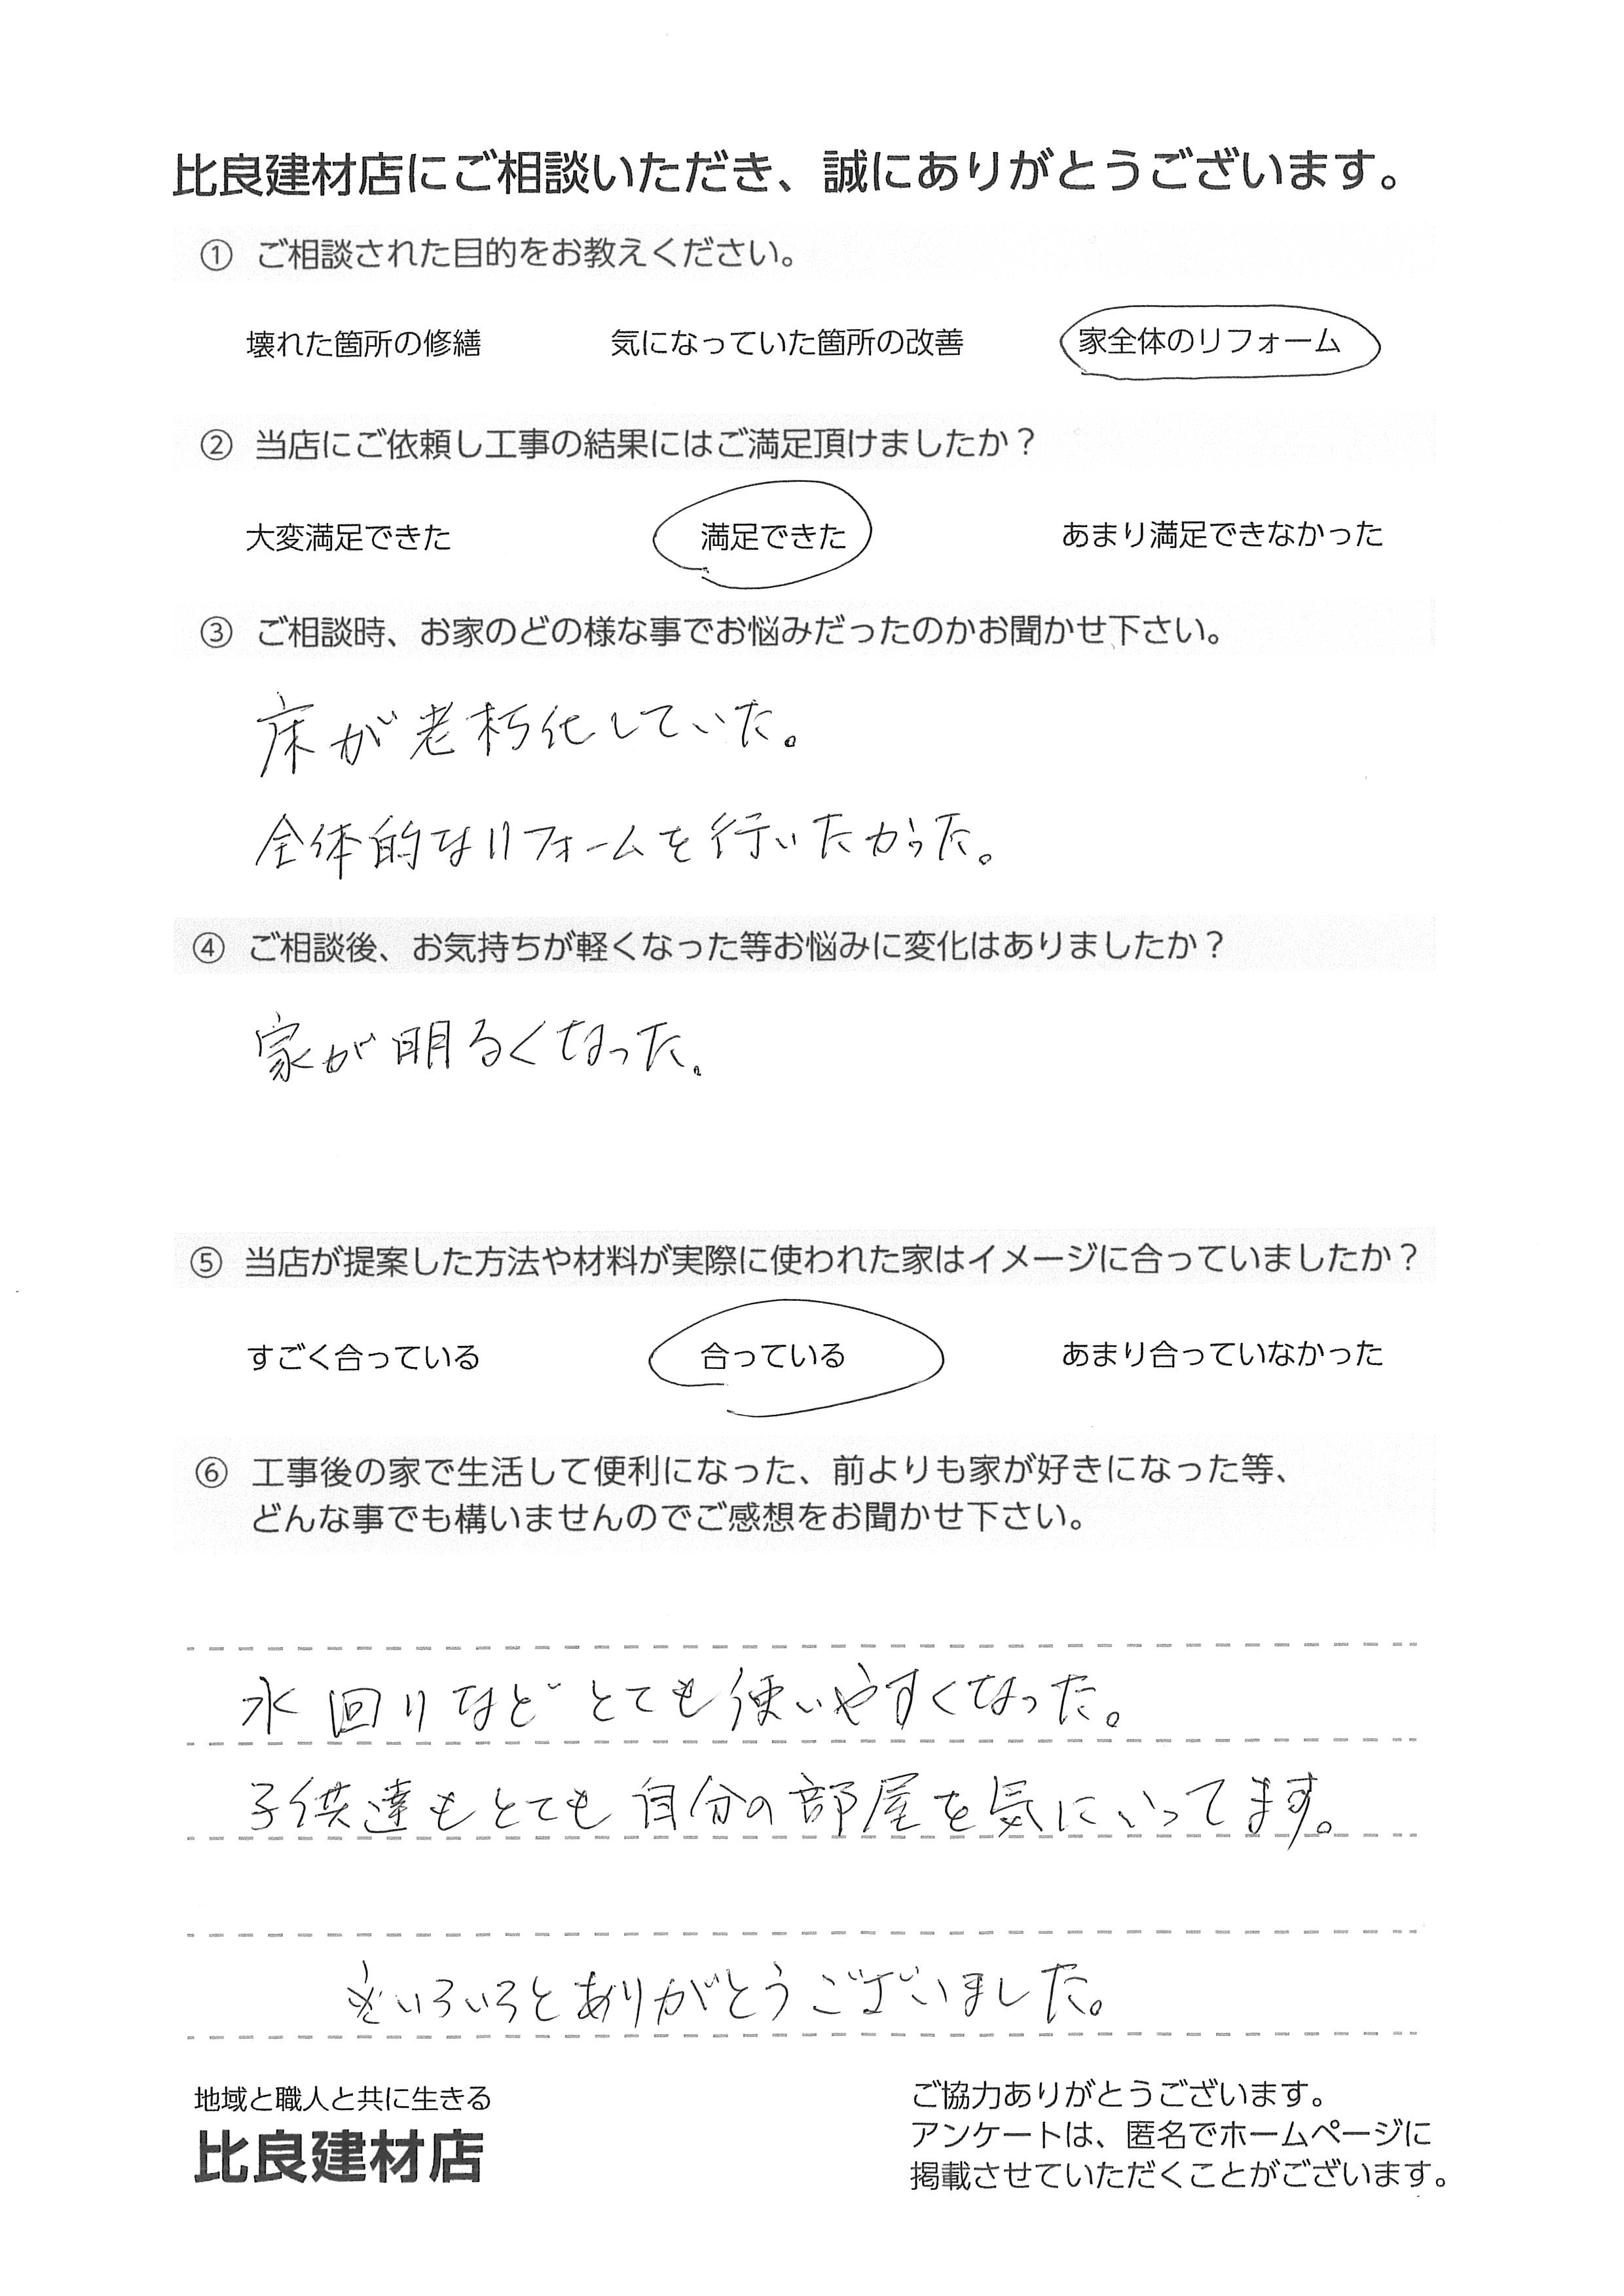 比良建材店にご相談いただき、誠にありがとうございます。
① ご相談された目的をお教えください。
壊れた箇所の修繕 気になっていた箇所の改善 家全体のリフォーム
② 当店にご依頼し工事の結果にはご満足頂けましたか？
大変満足できた 満足できた あまり満足できなかった
③ ご相談時、お家のどの様な事でお悩みだったのかお聞かせ下さい。
床が老朽化していた。
全体的なリフォームを行いたかった。
④ ご相談後、お気持ちが軽くなった等お悩みに変化はありましたか？
家が明るくなった。
⑤ 当店が提案した方法や材料が実際に使われた家はイメージに合っていましたか？
すごく合っている 合っている あまり合っていなかった
⑥ 工事後の家で生活して便利になった、前よりも家が好きになった等、
どんな事でも構いませんのでご感想をお聞かせ下さい。
水回りなどとても使いやすくなった。
子供達もとても自分の部屋を気にいってます。
いろいろとありがとうございました。
地域と職人と共に生きる
比良建材店
ご協力ありがとうございます。
アンケートは、匿名でホームページに
掲載させていただくことがございます。